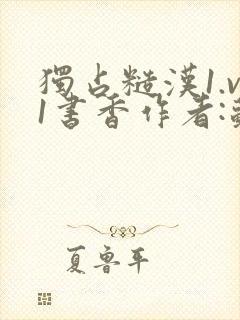 獨占糙漢1.v
1書香作者:
夏鲁平